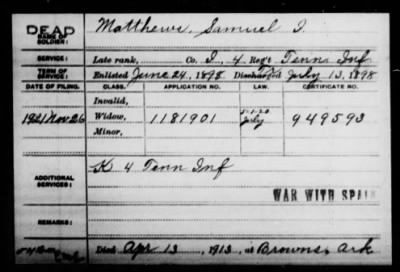 DEAD Matthews, Samuel I.
NAME OF SOLDIER:
SERVICE: Late rank, Co. I, 4 Reg't Tenn Inf
TERM OF SERVICE: Enlisted June 24, 1898 Discharged July 13, 1898
DATE OF FILING. CLASS. APPLICATION NO. LAW. CERTIFICATE NO.
Invalid,
1921 Nov 26 Widow, 1181901 July 949593
Minor,
ADDITIONAL SERVICES: K 4 Tenn Inf
WAR WITH SPAIN
REMARKS:
Died Apr 13, 1913, at Browns, Ark